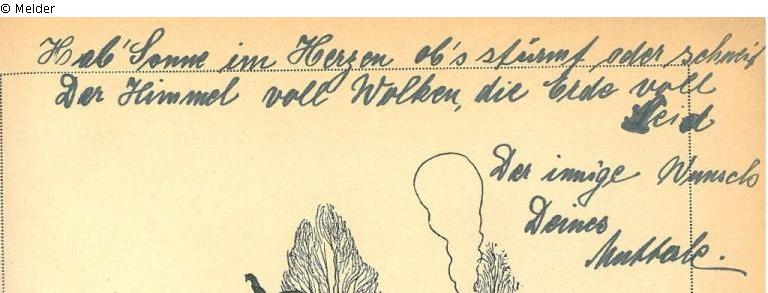 © Melder
Hab' Sonne im Herzen ob's stürmt oder schneit
Der Himmel voll Wolken, die Erde voll
Leid
Der innige Wunsch
Deines